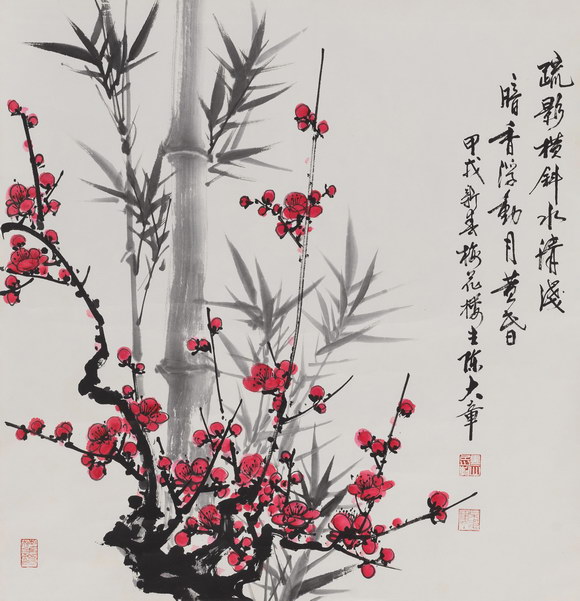 疏影横斜水清浅
暗香浮動月黄昏
甲戌新春梅花楼主陈大章